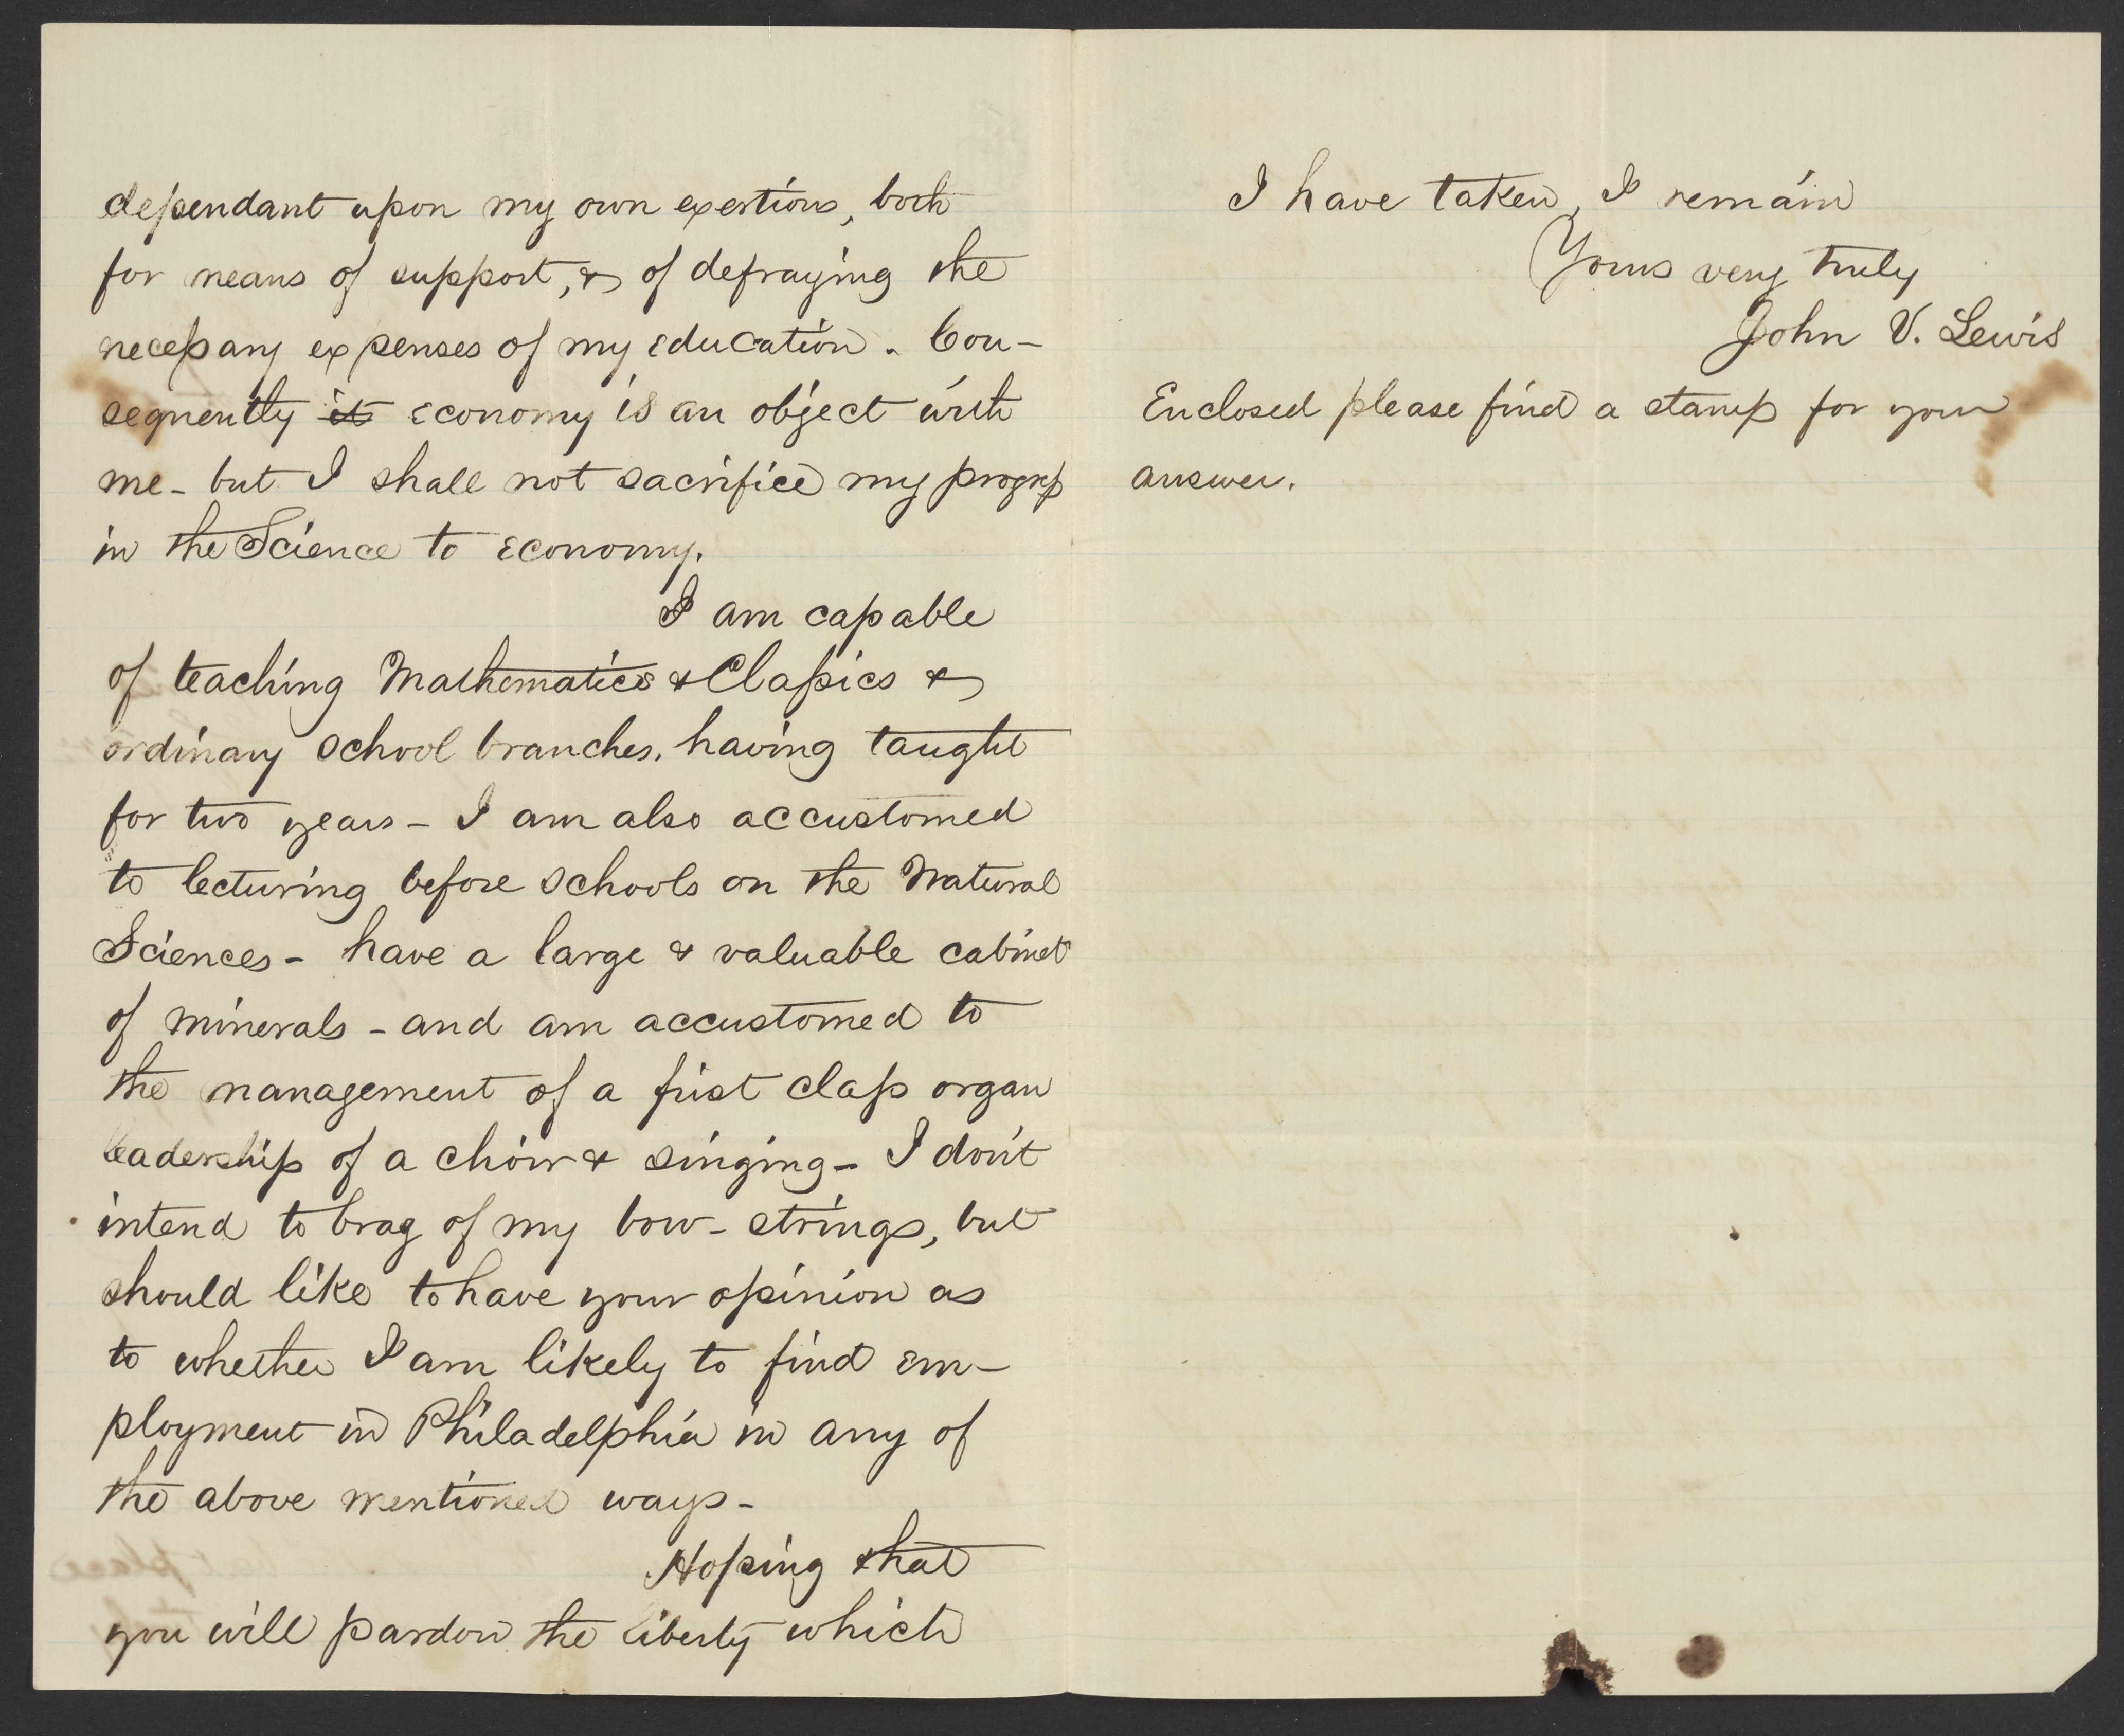 dependant upon my own exertions, both
for means of support, & of defraying the
necessary expenses of my education. Con-
sequently it economy is an object with
me - but I shall not sacrifice my progress
in the Science to economy.
I am capable
of teaching Mathematics & Classics &
ordinary school branches, having taught
for two years - I am also accustomed
to lecturing before schools on the Natural
Sciences - have a large & valuable cabinet
of minerals - and am accustomed to
the management of a first class organ
leadership of a choir & singing - I don't
intend to brag of my bow-strings, but
should like to have your opinion as
to whether I am likely to find em-
ployment in Philadelphia in any of
the above mentioned ways -
Hoping that
you will pardon the liberty which
I have taken, I remain
Yours very truly
John V. Lewis
Enclosed please find a stamp for your
answer.